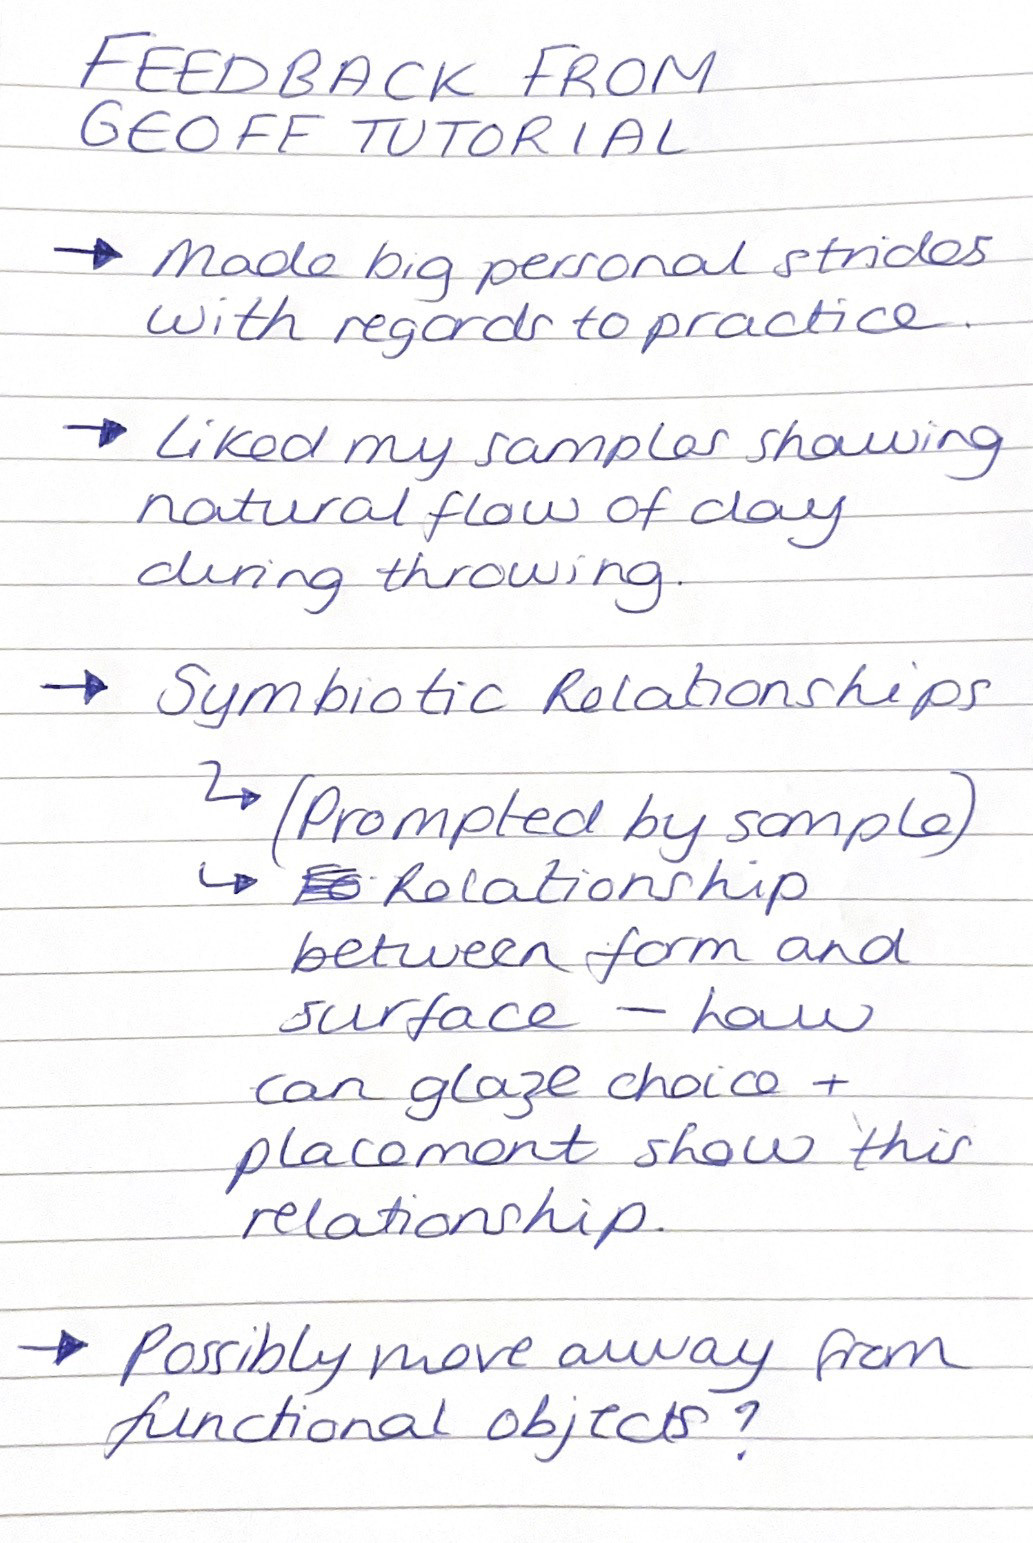 FEEDBACK FROM
GEOFF TUTORIAL
→ Made big personal strides
with regards to practice.
→ Liked my samples showing
natural flow of clay
during throwing.
→ Symbiotic Relationships
↳ (Prompted by sample)
↳ Relationship
between form and
surface — how
can glaze choice +
placement show this
relationship.
→ Possibly move away from
functional objects?